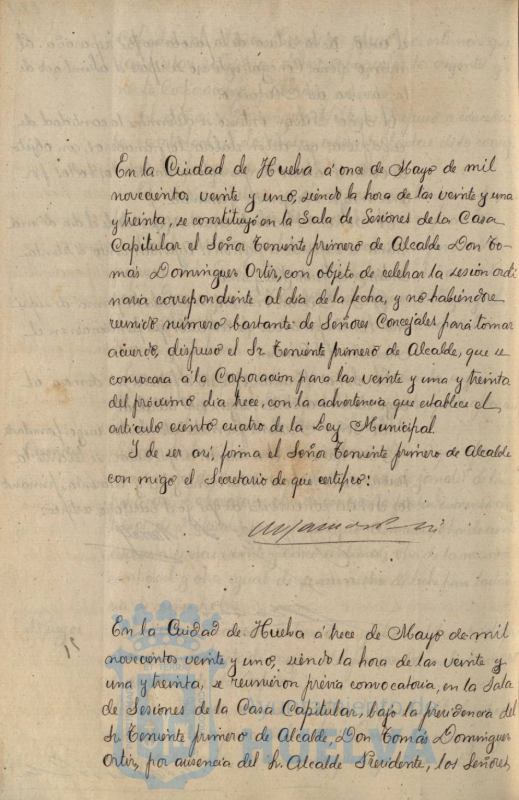 En la Ciudad de Huelva á once de Mayo de mil
novecientos veinte y uno, siendo la hora de las veinte y una
y treinta, se constituyó en la Sala de Sesiones de la Casa
Capitular el Señor Teniente primero de Alcalde Don To-
más Dominguez Ortiz, con objeto de celebrar la sesión ordi
naria correspondiente al día de la fecha, y no habiéndose
reunido número bastante de Señores Concejales para tomar
acuerdo, dispuso el Sr. Teniente primero de Alcalde, que se
convocara á la Corporación para las veinte y una y treinta
del próximo dia trece, con la advertencia que establece el
artículo ciento cuatro de la Ley Municipal.
Y de ser así, firma el Señor Teniente primero de Alcalde
con migo el Secretario de que certifico:
En la Ciudad de Huelva á trece de Mayo de mil
novecientos veinte y uno, siendo la hora de las veinte y
una y treinta, se reunieron prévia convocatoria, en la Sala
de Sesiones de la Casa Capitular, bajo la presidencia del
Sr. Teniente primero de Alcalde, Don Tomás Dominguez
Ortiz, por ausencia del Sr. Alcalde Presidente, los Señores
HUELVA